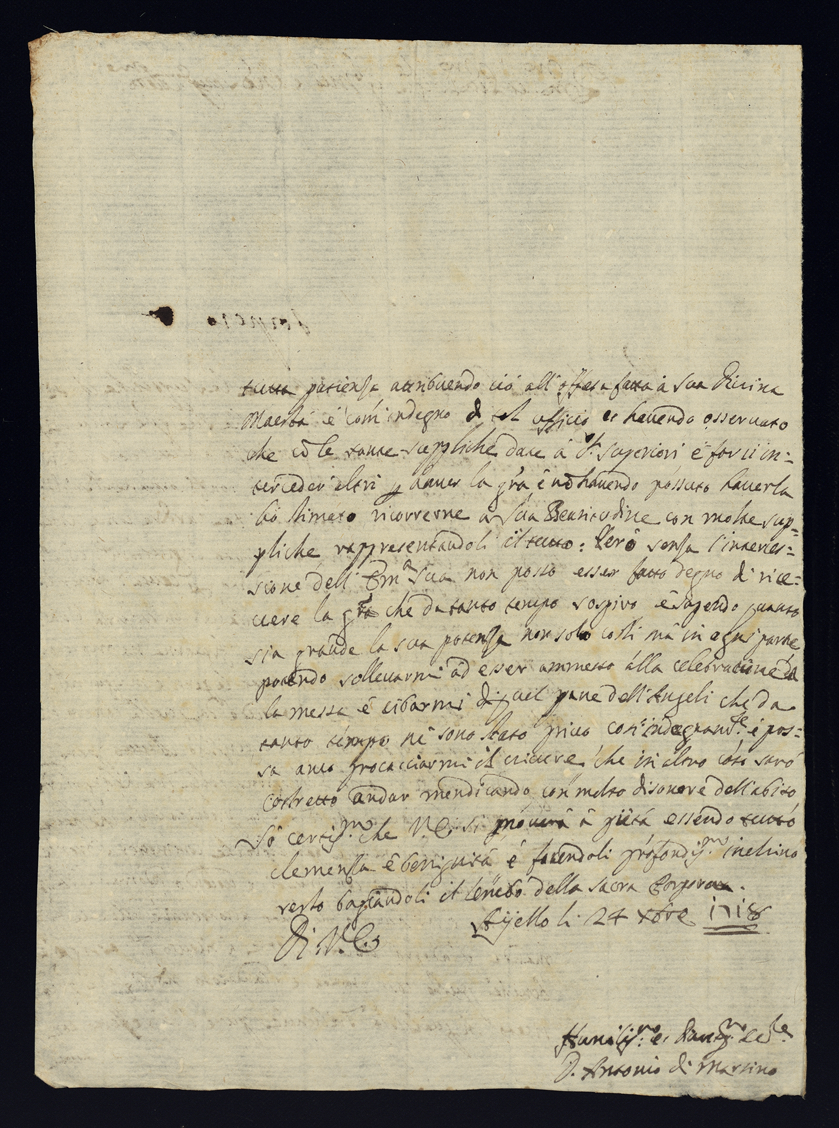 tutta patienza attribuendo ciò all'offesa fatta à Sua Divina
Maestà é com'indegno di tal officio et havendo osservato
che cò le tante suppliche date à Superiori é forsi in=
terceder altri p haver la grã é nõ havendo possuto haverla
hò stimato ricorrerne a Sua Beatitudine con molte sup=
pliche rappresentandoli il tutto: Però senza l'interces=
sione dell' Emza Sua non posso esser fatto degno di rice=
vere la grã che da tanto tempo sospiro é sapendo quanto
sia grande la sua potenza non solo costì mà in ogni parte
potendo sollevarmi ad esser ammesso alla celebratione del
la messa é cibarmi di quel pane dell'Angeli che da
tanto tempo ne sono stato privo così indegnamte é pos=
sa anco procacciarmi il vivere che in altro caso sarò
costretto andar mendicando con molto disonore dell'abito
Sò certissmo che V.E. si moverà à pietà essendo tutto
clemenza é benignità é facendoli profondissmo inchino
resto bagiandoli il lembo della sacra Porpora.
Di V.E. Ajello li 24 Xbre 1718
Humilissmo et
D. Antonio di Martino